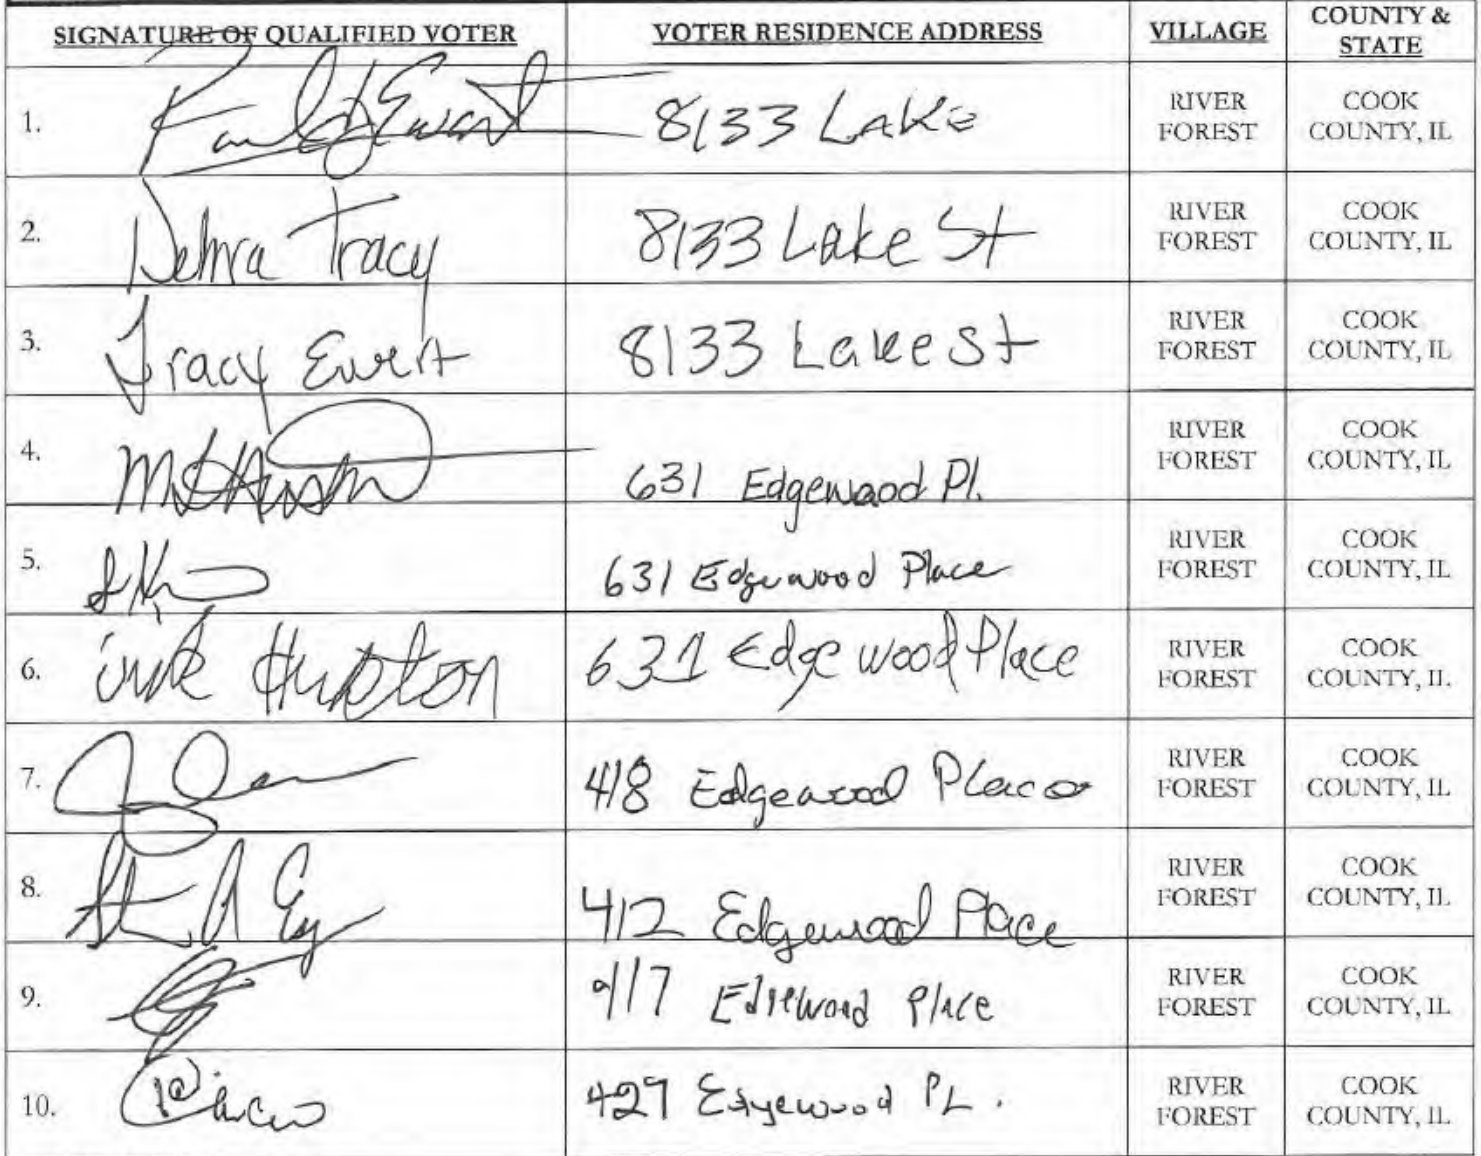 SIGNATURE OF QUALIFIED VOTER VOTER RESIDENCE ADDRESS VILLAGE COUNTY & STATE
1. 8133 Lake RIVER FOREST COOK COUNTY, IL
2. Debra Tracy 8133 Lake St RIVER FOREST COOK COUNTY, IL
3. Tracy Ewert 8133 Lake St RIVER FOREST COOK COUNTY, IL
4. 631 Edgewood Pl. RIVER FOREST COOK COUNTY, IL
5. 631 Edgewood Place RIVER FOREST COOK COUNTY, IL
6. 631 Edgewood Place RIVER FOREST COOK COUNTY, IL
7. 418 Edgewood Place RIVER FOREST COOK COUNTY, IL
8. 412 Edgewood Place RIVER FOREST COOK COUNTY, IL
9. Edgewood Place RIVER FOREST COOK COUNTY, IL
10. Edgewood PL. RIVER FOREST COOK COUNTY, IL